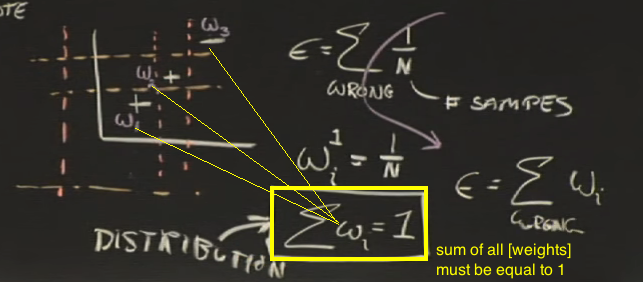 OTE
ω₃
ωᵢ +
+
ω₁
ϵ = ∑ 1/N
WRONG
# SAMPES
ωᵢ¹ = 1/N
ϵ = ∑ ωᵢ
WRONG
∑ ωᵢ = 1
DISTRIBUTION
sum of all [weights]
must be equal to 1